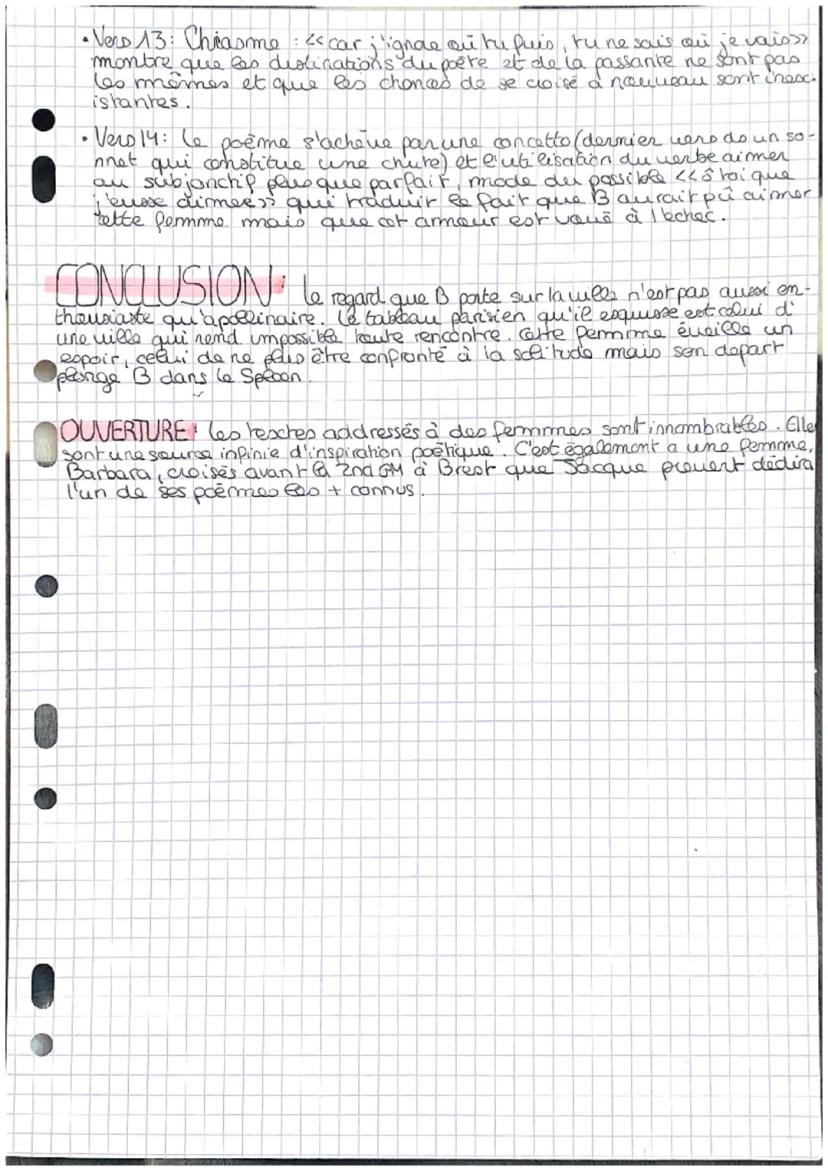 • Vers 13 : Chiasme : << car j'ignore où tu fuis, tu ne sais où je vais >>
montre que les destinations du poète et de la passante ne sont pas
les mêmes et que les chances de se croisé à nouveau sont inex-
istantes.
• Vers 14 : Le poème s'achève par une concetto (dernier vers de un so-
nnet qui constitue une chute) et l'utilisation du verbe aimer
au subjonctif plus que parfait, mode du possible << ô toi que
j'eusse aimée >> qui traduit le fait que B aurait pû aimer
cette femme mais que cet amour est voué à l'échec.
CONCLUSION : le regard que B porte sur la ville n'est pas aussi en-
thousiaste qu'apollinaire. Le tableau parisien qu'il esquisse est celui d'
une ville qui rend impossible toute rencontre. Cette femme éveille un
espoir, celui de ne plus être confronté à la solitude mais son depart
plonge B dans le Spleen.
OUVERTURE : les textes addressés à des femmes sont innombrables. Elle
sont une source infinie d'inspiration poétique. C'est également a une femme,
Barbara, croisés avant la 2nd GM à Brest que Jacque prevert dédira
l'un de ses poèmes les + connus.